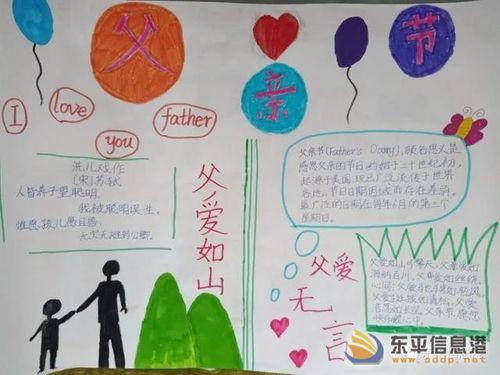 父
亲
节
I
love
father
you
洗儿戏作
(宋)苏轼
人皆养子望聪明,
我被聪明误一生。
惟愿孩儿愚且鲁,
无灾无难到公卿。
父爱如山
父亲节(Father's Day),顾名思义是
感恩父亲的节日约始于二十世纪初,
起源于美国,现已广泛流传于世界
各地,节日日期因域而存在差异。
最广泛的日期在每年6月的第三个
星期日。
父爱
无
言
东平信息港
www.sddp.net